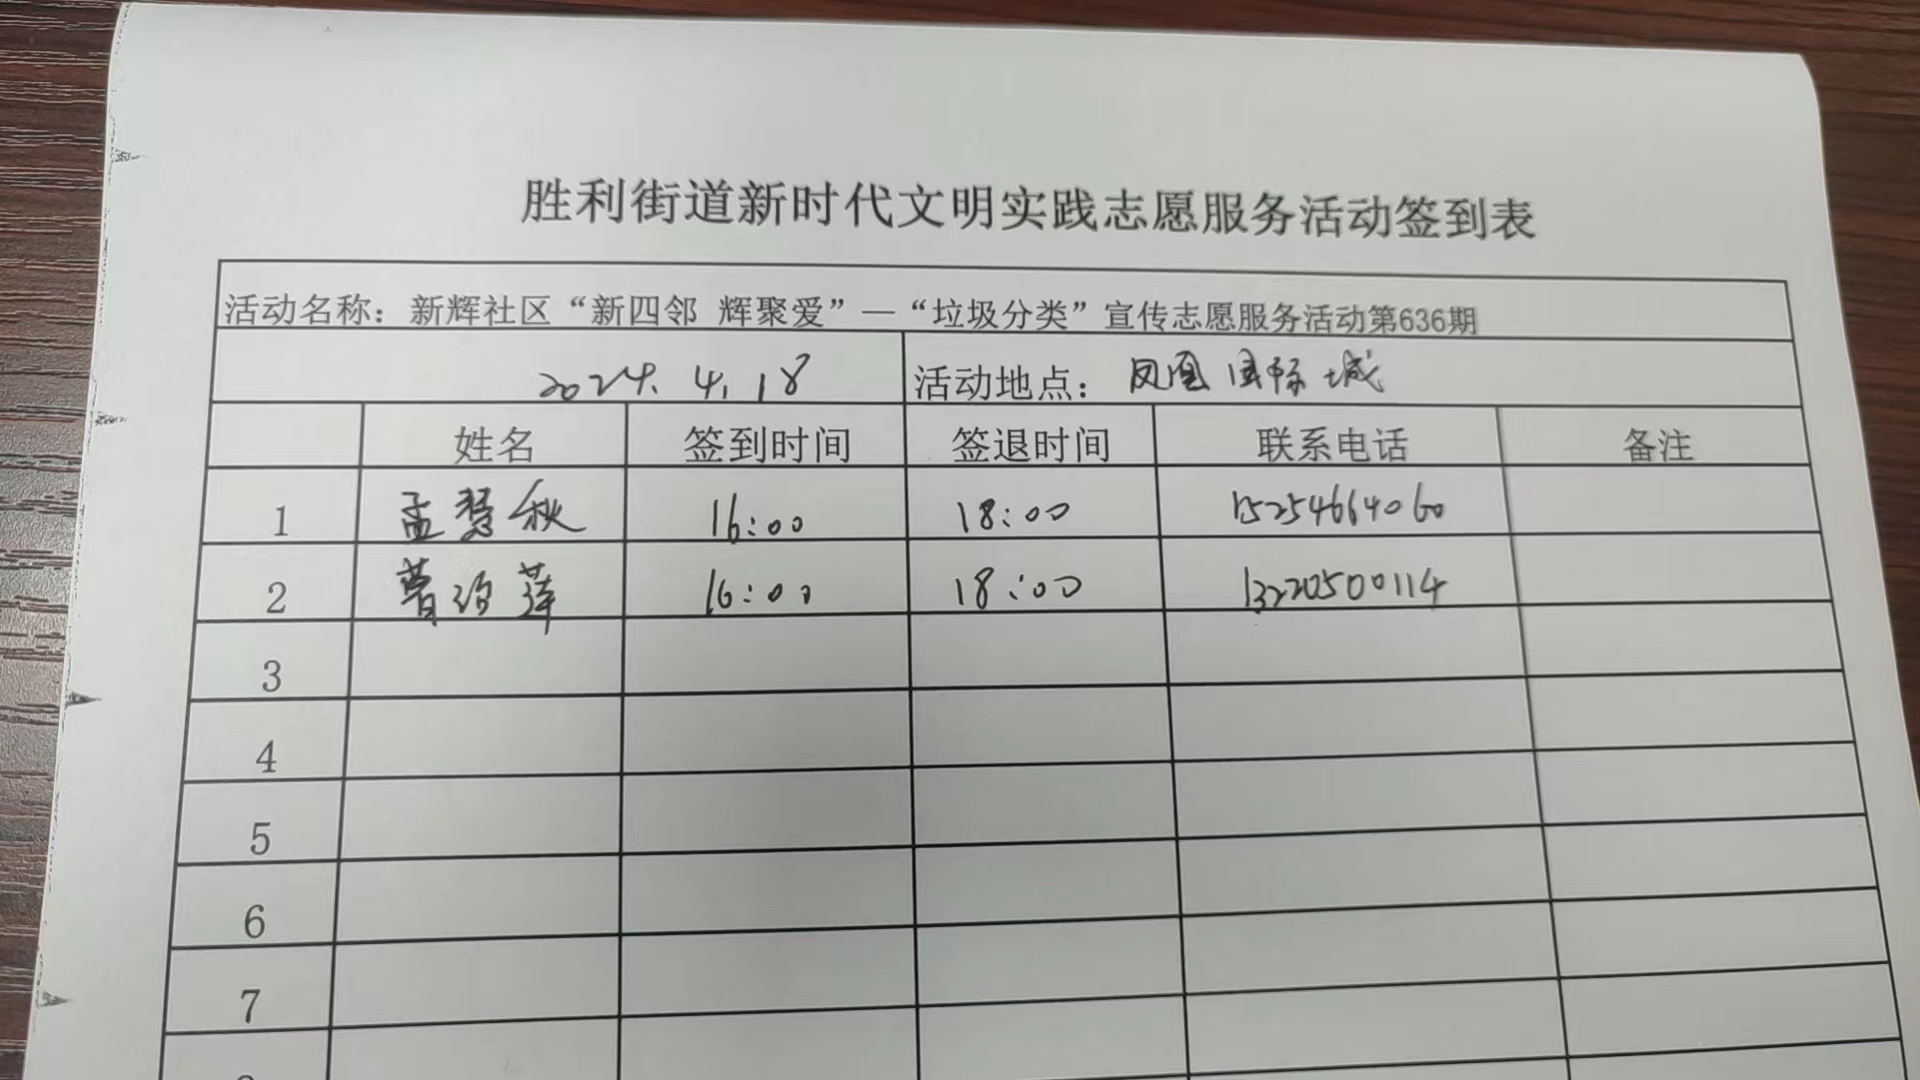 胜利街道新时代文明实践志愿服务活动签到表
活动名称：新辉社区“新四邻 辉聚爱”—“垃圾分类”宣传志愿服务活动第636期
2024.4.18 活动地点：凤凰国际城
姓名 签到时间 签退时间 联系电话 备注
1 孟慧秋 16:00 18:00 15254664060
2 曹 莲 16:00 18:00 13220500114
3
4
5
6
7